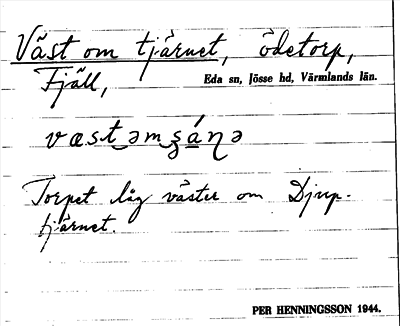 Väst om tjärnet, ödetorp,
Fjäll,
Eda sn, Jösse hd, Värmlands län.
Torpet låg väster om Djup-
tjärnet.
PER HENNINGSSON 1944.